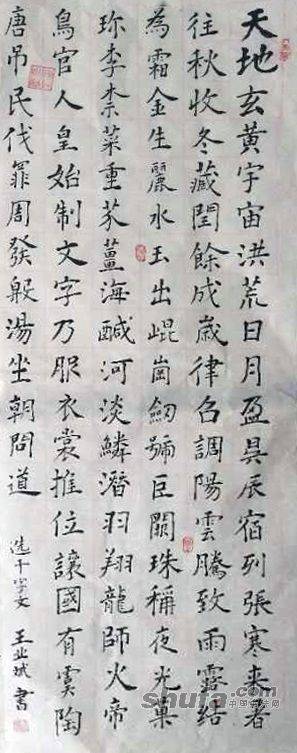 天地玄黃宇宙洪荒日月盈昃辰宿列張寒来暑
往秋收冬藏閏餘成歲律召調陽雲騰致雨露结
為霜金生麗水玉出崐崗劒號巨闕珠稱夜光菓
珍李柰菜重芥薑海鹹河淡鱗潛羽翔龍師火帝
鳥官人皇始制文字乃服衣裳推位讓國有虞陶
唐吊民伐罪周發殷湯坐朝問道
选千字文 王 斌 書
shufa.com